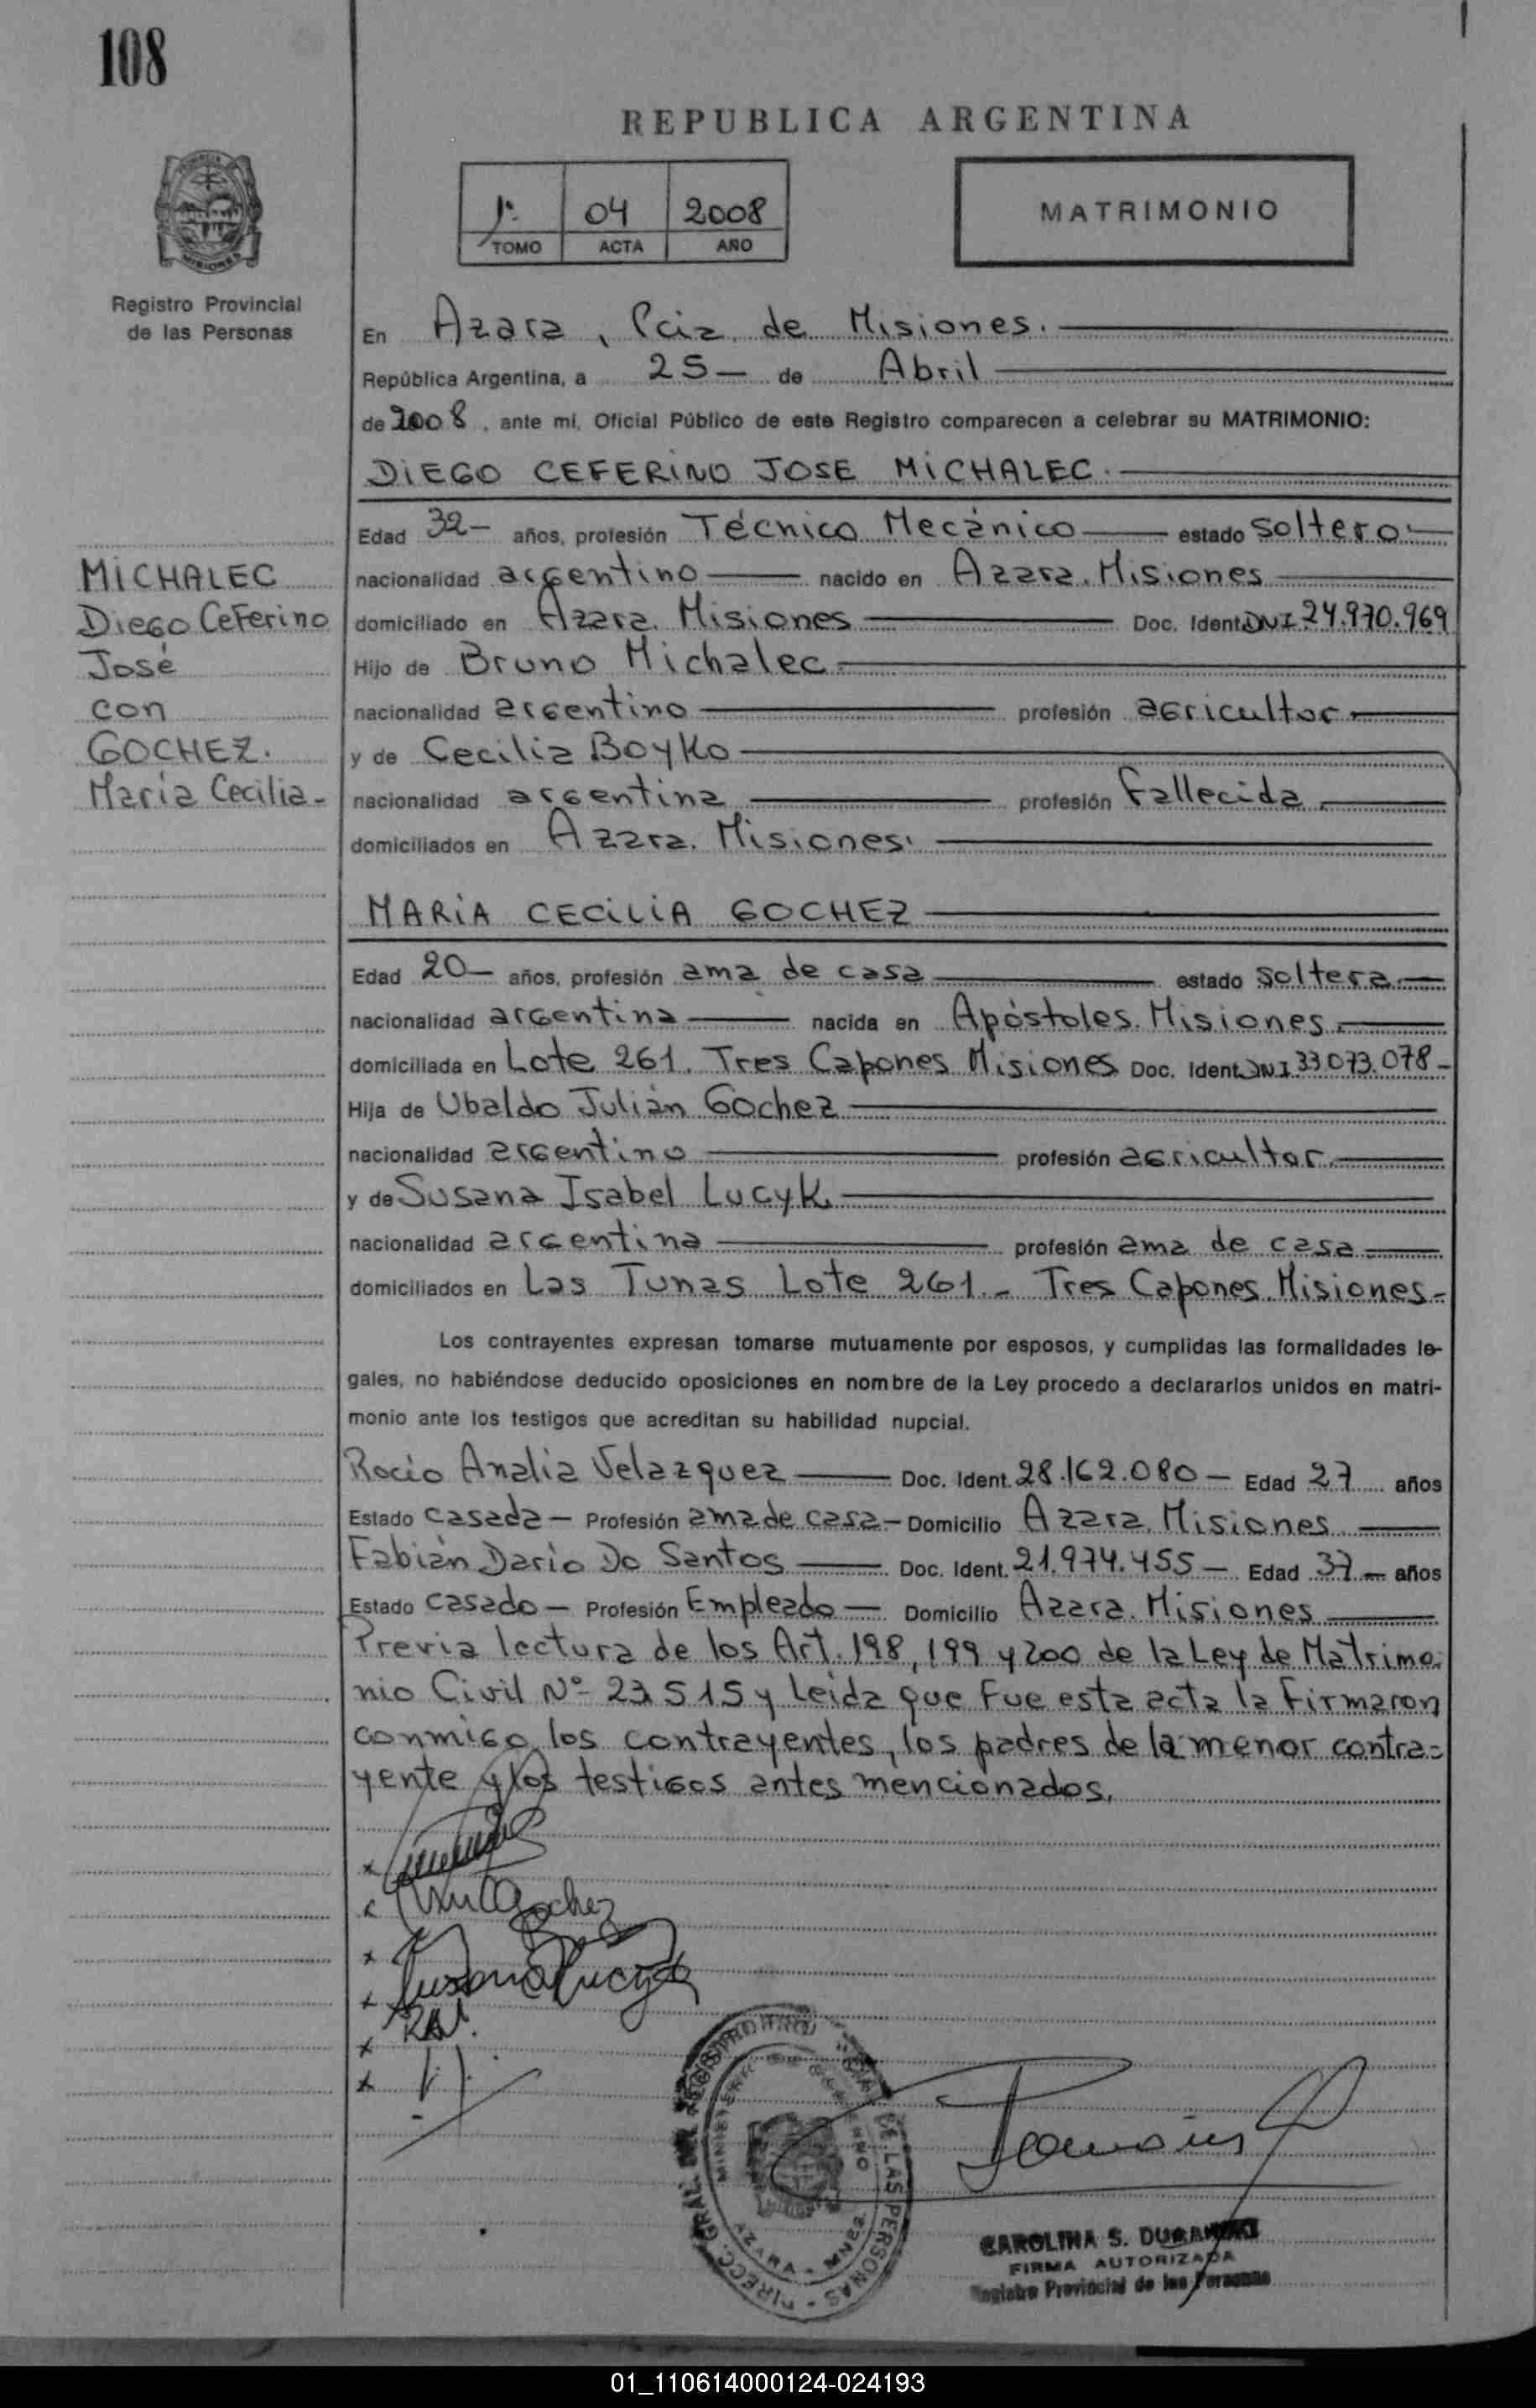 108
REPUBLICA ARGENTINA
1º 04 2008
TOMO ACTA AÑO
MATRIMONIO
MISIONES
Registro Provincial
de las Personas
En Azara, Pcia. de Misiones.
República Argentina, a 25 de Abril
de 2008, ante mí, Oficial Público de este Registro comparecen a celebrar su MATRIMONIO:
DIEGO CEFERINO JOSE MICHALEC.
Edad 32 años, profesión Técnico Mecánico estado soltero
nacionalidad argentino nacido en Azara. Misiones
domiciliado en Azara. Misiones Doc. Ident. DNI 24.970.969
Hijo de Bruno Michalec
nacionalidad argentino profesión agricultor
y de Cecilia Boyko
nacionalidad argentina profesión Fallecida
domiciliados en Azara. Misiones.
MICHALEC
Diego Ceferino
José
con
GOCHEZ.
María Cecilia-
MARIA CECILIA GOCHEZ
Edad 20 años, profesión ama de casa estado soltera
nacionalidad argentina nacida en Apóstoles. Misiones.
domiciliada en Lote 261. Tres Capones Misiones Doc. Ident. DNI 33.073.078-
Hija de Ubaldo Julián Gochez
nacionalidad argentino profesión agricultor
y de Susana Isabel Lucyk.
nacionalidad argentina profesión ama de casa
domiciliados en Las Tunas Lote 261 - Tres Capones. Misiones-
Los contrayentes expresan tomarse mutuamente por esposos, y cumplidas las formalidades le-
gales, no habiéndose deducido oposiciones en nombre de la Ley procedo a declararlos unidos en matri-
monio ante los testigos que acreditan su habilidad nupcial.
Rocio Analia Velazquez Doc. Ident. 28.162.080 Edad 27 años
Estado casada Profesión ama de casa Domicilio Azara. Misiones
Fabián Dario Do Santos Doc. Ident. 21.974.455 Edad 37 años
Estado casado Profesión Empleado Domicilio Azara. Misiones
Previa lectura de los Art. 198, 199 y 200 de la Ley de Matrimo-
nio Civil Nº 23.515 y leida que fue esta acta la firmaron
conmigo los contrayentes, los padres de la menor contra-
yente y los testigos antes mencionados.
Gochez
Susana Lucyk
RAV.
DIRECC. GRAL. DEL REGISTRO PROV. DE LAS PERSONAS
MINISTERIO DE GOBIERNO
AZARA - MNES
CAROLINA S.
FIRMA AUTORIZADA
Registro Provincial de las Personas
01_110614000124-024193